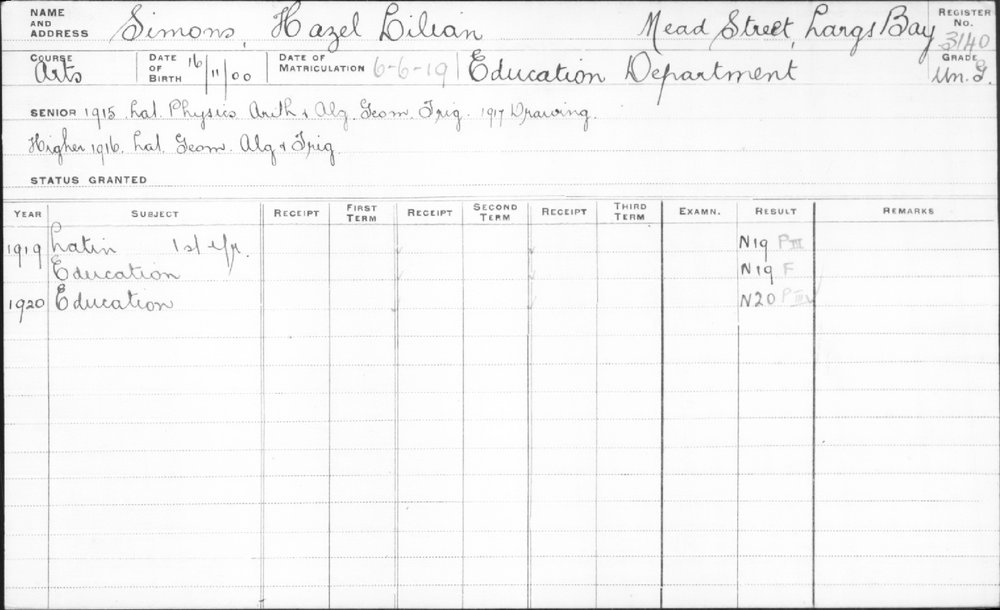 NAME AND ADDRESS Simons, Hazel Lilian Mead Street, Largs Bay REGISTER No. 3140
COURSE Arts DATE OF BIRTH 16/11/00 DATE OF MATRICULATION 6-6-19 Education Department GRADE Un. G.
SENIOR 1915 Lat. Physics Arith & Alg. Geom. Trig. 1917 Drawing.
Higher 1916. Lat. Geom. Alg & Trig.
STATUS GRANTED
YEAR SUBJECT RECEIPT FIRST TERM RECEIPT SECOND TERM RECEIPT THIRD TERM EXAMN. RESULT REMARKS
1919 Latin 1st yr. N19 PIII
Education N19 F
1920 Education N20 PIII